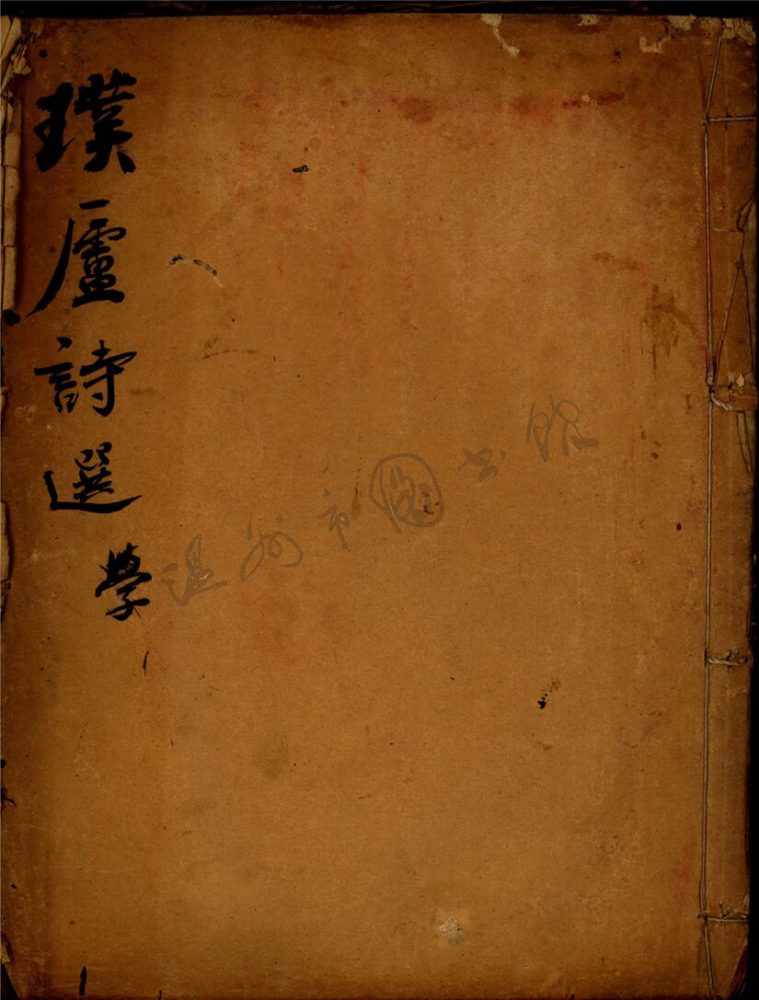 璞廬詩選
學
温州市图书馆